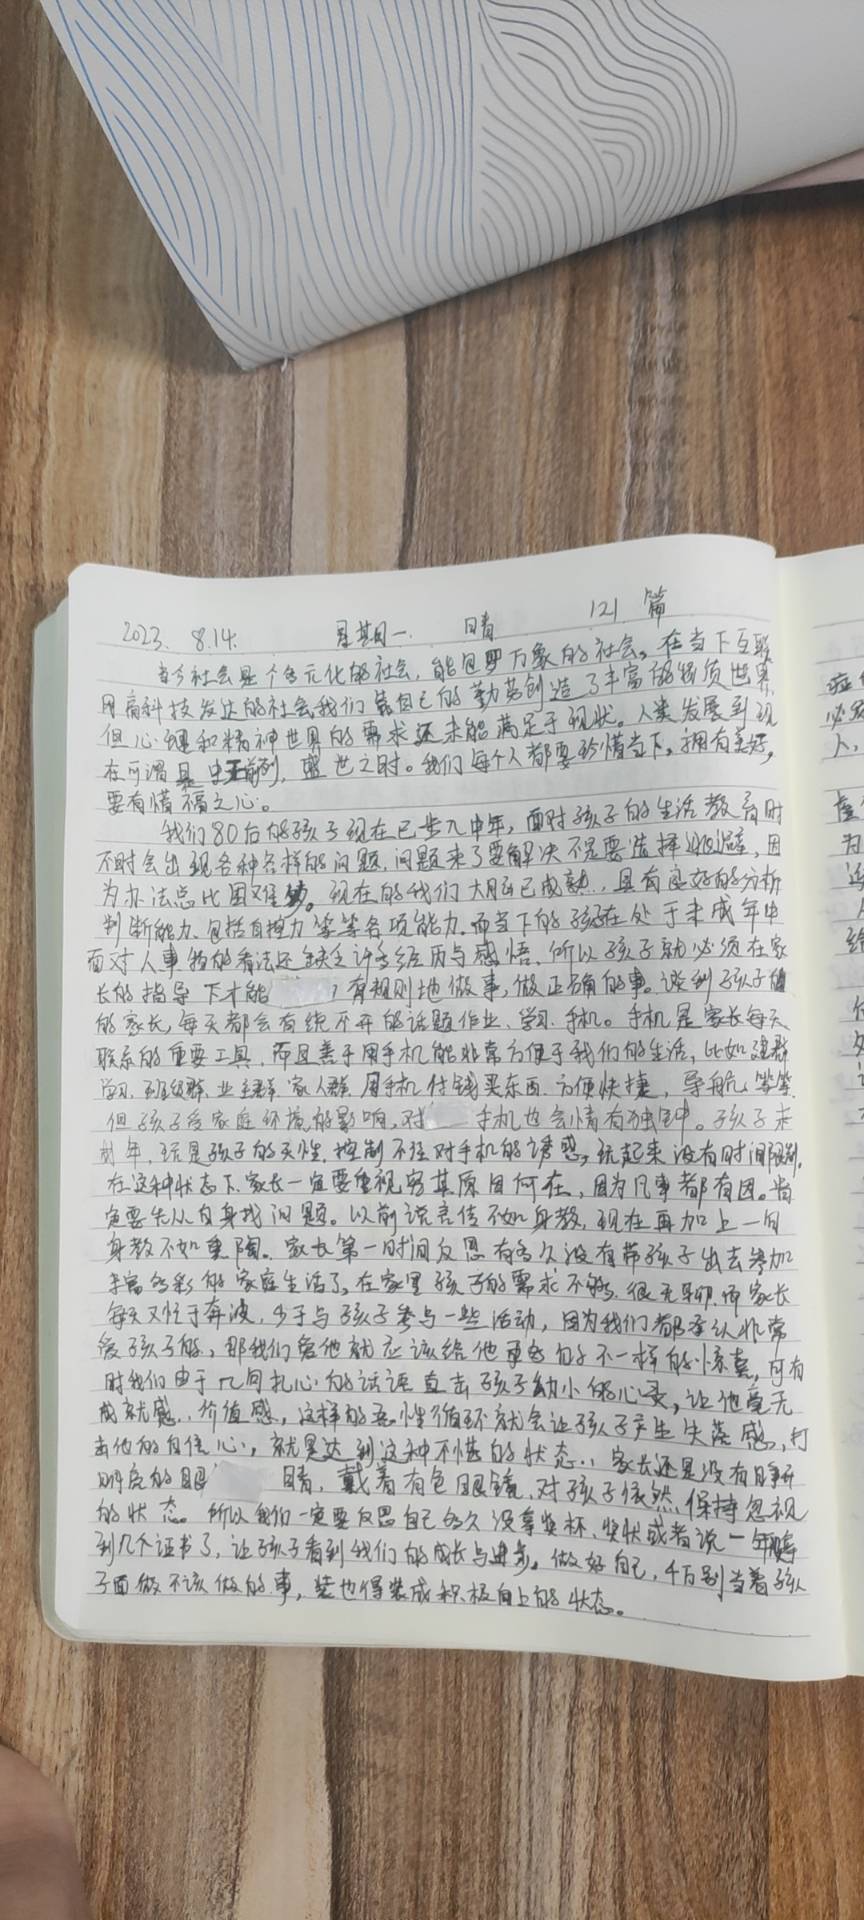 2023. 8.14. 星期一. 晴 121 篇
当今社会是个多元化的社会, 能包罗万象的社会。在当下互联
网高科技发达的社会我们靠自己的勤劳创造了丰富的物质世界,
但心理和精神世界的需求还未能满足于现状。人类发展到现
在可谓是 盛世之时。我们每个人都要珍惜当下, 拥有美好,
要有惜福之心。
我们80后的孩子现在已步入中年, 面对孩子的生活教育时
不时会出现各种各样的问题, 问题来了要解决不是要选择逃避, 因
为办法总比困难多。现在的我们大脑已成熟, 具有良好的分析
判断能力、包括自控力等等各项能力。而当下的孩子在处于未成年中
面对人事物的看法还缺乏许多经历与感悟, 所以孩子就必须在家
长的指导下才能 有规则地做事, 做正确的事。谈到孩子
的家长, 每天都会有绕不开的话题作业、学习、手机。手机是家长每天
联系的重要工具, 而且善于用手机能非常方便于我们的生活, 比如建群
学习, 班级群, 业主群, 家人群, 用手机付钱买东西, 方便快捷, 导航, 等等.
但孩子受家庭环境的影响, 对 手机也会情有独钟。孩子未
成年, 玩是孩子的天性, 控制不住对手机的诱惑, 玩起来没有时间限制,
在这种状态下, 家长一定要重视究其原因何在, 因为凡事都有因。肯
定要先从自身找问题。以前说言传不如身教, 现在再加上一句
身教不如熏陶。家长第一时间反思有多久没有带孩子出去参加
丰富多彩的家庭生活了, 在家里孩子的需求不够, 很无聊, 而家长
每天又忙于奔波, 少于与孩子参与一些活动, 因为我们都承认非常
爱孩子的, 那我们爱他就应该给他更多的不一样的惊喜, 可有
时我们由于几句扎心的话语直击孩子幼小的心灵, 让他毫无
成就感, 价值感, 这样的恶性循环就会让孩子产生失落感, 打
击他的自信心, 就是达到这种不堪的状态, 家长还是没有睁开
明亮的眼 睛, 戴着有色眼镜, 对孩子依然保持忽视
的状态。所以我们一定要反思自己多久没拿奖杯、奖状或者说一年
到几个证书了, 让孩子看到我们的成长与进步。做好自己, 千万别当着孩
子面做不该做的事, 装也得装成积极向上的状态。